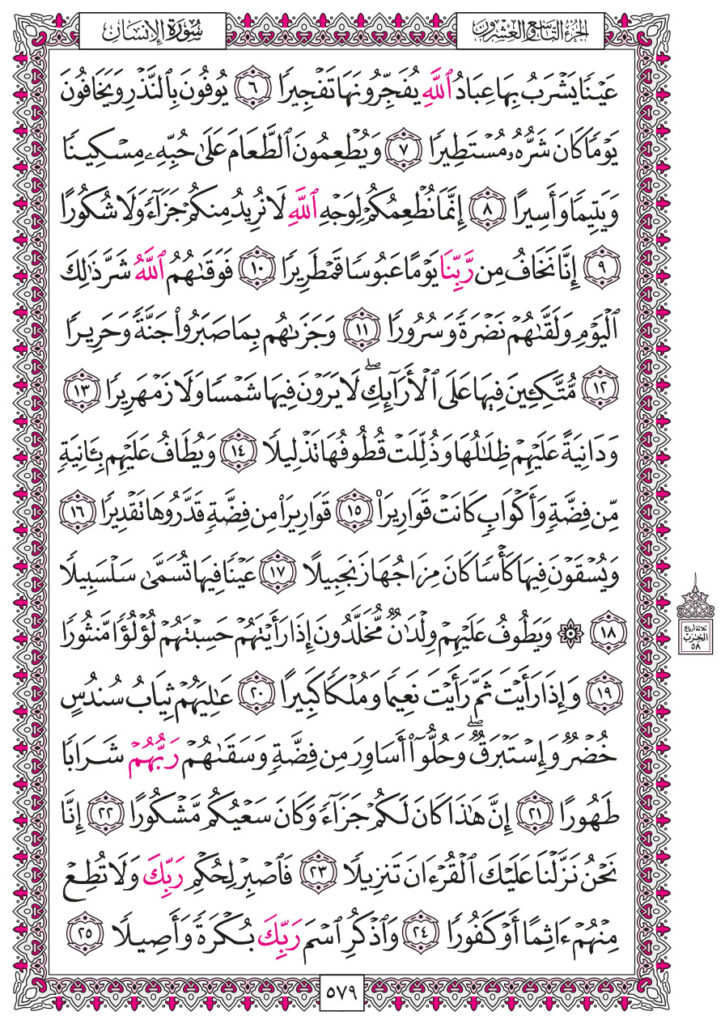 الجزء التاسع والعشرون
سورة الإنسان
عَيْنًا يَشْرَبُ بِهَا عِبَادُ ٱللَّهِ يُفَجِّرُونَهَا تَفْجِيرًا ٦ يُوفُونَ بِٱلنَّذْرِ وَيَخَافُونَ
يَوْمًا كَانَ شَرُّهُۥ مُسْتَطِيرًا ٧ وَيُطْعِمُونَ ٱلطَّعَامَ عَلَىٰ حُبِّهِۦ مِسْكِينًا
وَيَتِيمًا وَأَسِيرًا ٨ إِنَّمَا نُطْعِمُكُمْ لِوَجْهِ ٱللَّهِ لَا نُرِيدُ مِنكُمْ جَزَآءً وَلَا شُكُورًا
٩ إِنَّا نَخَافُ مِن رَّبِّنَا يَوْمًا عَبُوسًا قَمْطَرِيرًا ١٠ فَوَقَىٰهُمُ ٱللَّهُ شَرَّ ذَٰلِكَ
ٱلْيَوْمِ وَلَقَّىٰهُمْ نَضْرَةً وَسُرُورًا ١١ وَجَزَىٰهُم بِمَا صَبَرُوا۟ جَنَّةً وَحَرِيرًا
١٢ مُّتَّكِـِٔينَ فِيهَا عَلَى ٱلْأَرَآئِكِ ۖ لَا يَرَوْنَ فِيهَا شَمْسًا وَلَا زَمْهَرِيرًا ١٣
وَدَانِيَةً عَلَيْهِمْ ظِلَٰلُهَا وَذُلِّلَتْ قُطُوفُهَا تَذْلِيلًا ١٤ وَيُطَافُ عَلَيْهِم بِـَٔانِيَةٍ
مِّن فِضَّةٍ وَأَكْوَابٍ كَانَتْ قَوَارِيرَا۠ ١٥ قَوَارِيرَا۟ مِن فِضَّةٍ قَدَّرُوهَا تَقْدِيرًا ١٦
وَيُسْقَوْنَ فِيهَا كَأْسًا كَانَ مِزَاجُهَا زَنجَبِيلًا ١٧ عَيْنًا فِيهَا تُسَمَّىٰ سَلْسَبِيلًا
١٨ ۞ وَيَطُوفُ عَلَيْهِمْ وِلْدَٰنٌ مُّخَلَّدُونَ إِذَا رَأَيْتَهُمْ حَسِبْتَهُمْ لُؤْلُؤًا مَّنثُورًا
١٩ وَإِذَا رَأَيْتَ ثَمَّ رَأَيْتَ نَعِيمًا وَمُلْكًا كَبِيرًا ٢٠ عَٰلِيَهُمْ ثِيَابُ سُندُسٍ
خُضْرٌ وَإِسْتَبْرَقٌ ۖ وَحُلُّوٓا۟ أَسَاوِرَ مِن فِضَّةٍ وَسَقَىٰهُمْ رَبُّهُمْ شَرَابًا
طَهُورًا ٢١ إِنَّ هَٰذَا كَانَ لَكُمْ جَزَآءً وَكَانَ سَعْيُكُم مَّشْكُورًا ٢٢ إِنَّا
نَحْنُ نَزَّلْنَا عَلَيْكَ ٱلْقُرْءَانَ تَنزِيلًا ٢٣ فَٱصْبِرْ لِحُكْمِ رَبِّكَ وَلَا تُطِعْ
مِنْهُمْ ءَاثِمًا أَوْ كَفُورًا ٢٤ وَٱذْكُرِ ٱسْمَ رَبِّكَ بُكْرَةً وَأَصِيلًا ٢٥
ثلاثة أرباع
الحزب
٥٨
٥٧٩